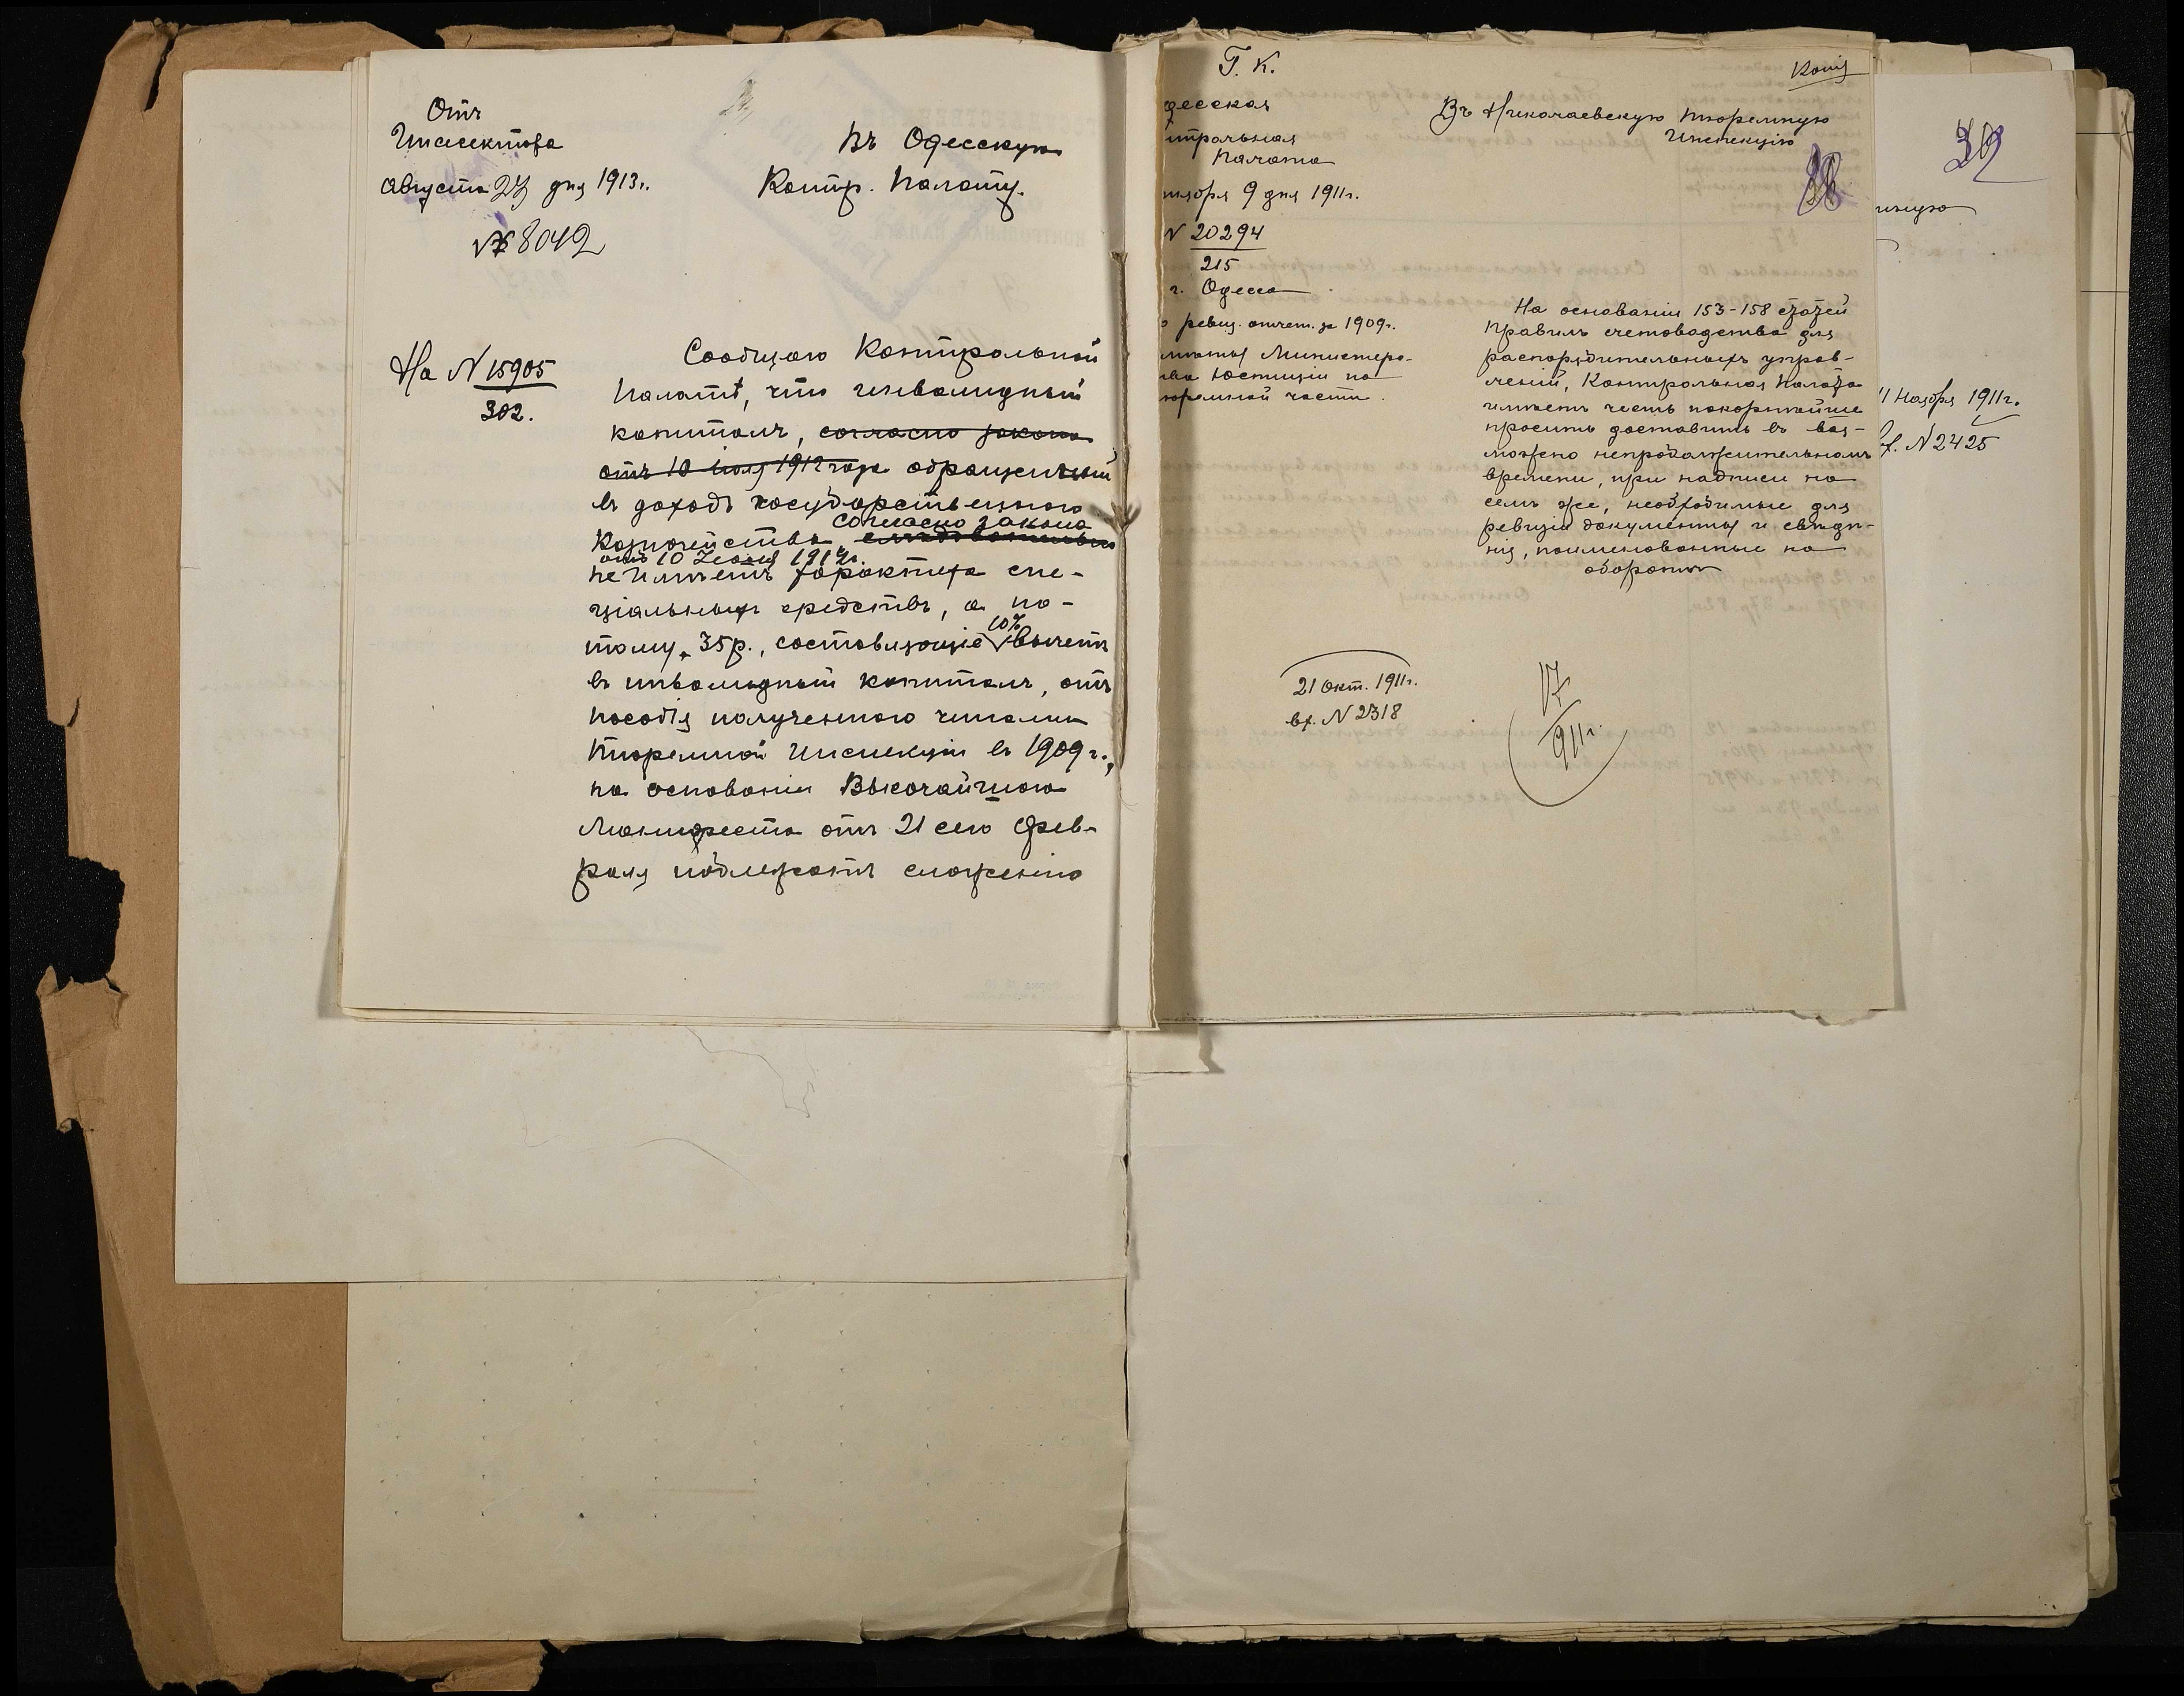 Отъ
Инспектора
Августа 27 дня 1913 г.
№ 8042
Въ Одесскую
Контр. Палату.
На N 15905
302.
Сообщаю Контрольной
Палатѣ, что инвалидный
капиталъ, согласно закона
отъ 10 іюля 1912 года обращенный
въ доходъ государственнаго
согласно закона
Казначейства,
отъ 10 Іюля 1912 г.
не имѣетъ характера спе-
ціальныхъ средствъ, а по-
тому 35 р., составляющіе
10%
вычетъ
въ инвалидный капиталъ, отъ
пособія полученнаго чинами
Тюремной Инспекціи въ 1909 г.,
на основаніи Высочайшаго
Манифеста отъ 21 сего Фев-
раля подлежатъ сложенію
Г. К.
Копія
десская
нтрольная
Палата
тября 9 дня 1911 г.
N 20294
215
г. Одесса
о ревиз. отчет. за 1909 г.
Министерс-
тва Юстиціи по
тюремной части.
Въ Николаевскую Тюремную
Инспекцію
На основаніи 153-158 статей
Правилъ счетоводства для
распорядительныхъ управ-
леній, Контрольная Палата
имѣетъ честь покорнѣйше
просить доставить въ воз-
можно непродолжительномъ
времени, при надписи на
семъ же, необходимые для
ревизіи документы и свѣдѣ-
нія, поименованные на
оборотѣ
21 Окт. 1911 г.
вх. N 2318
17
911 г.
39
нную
11 Ноября 1911 г.
вх. N 2425